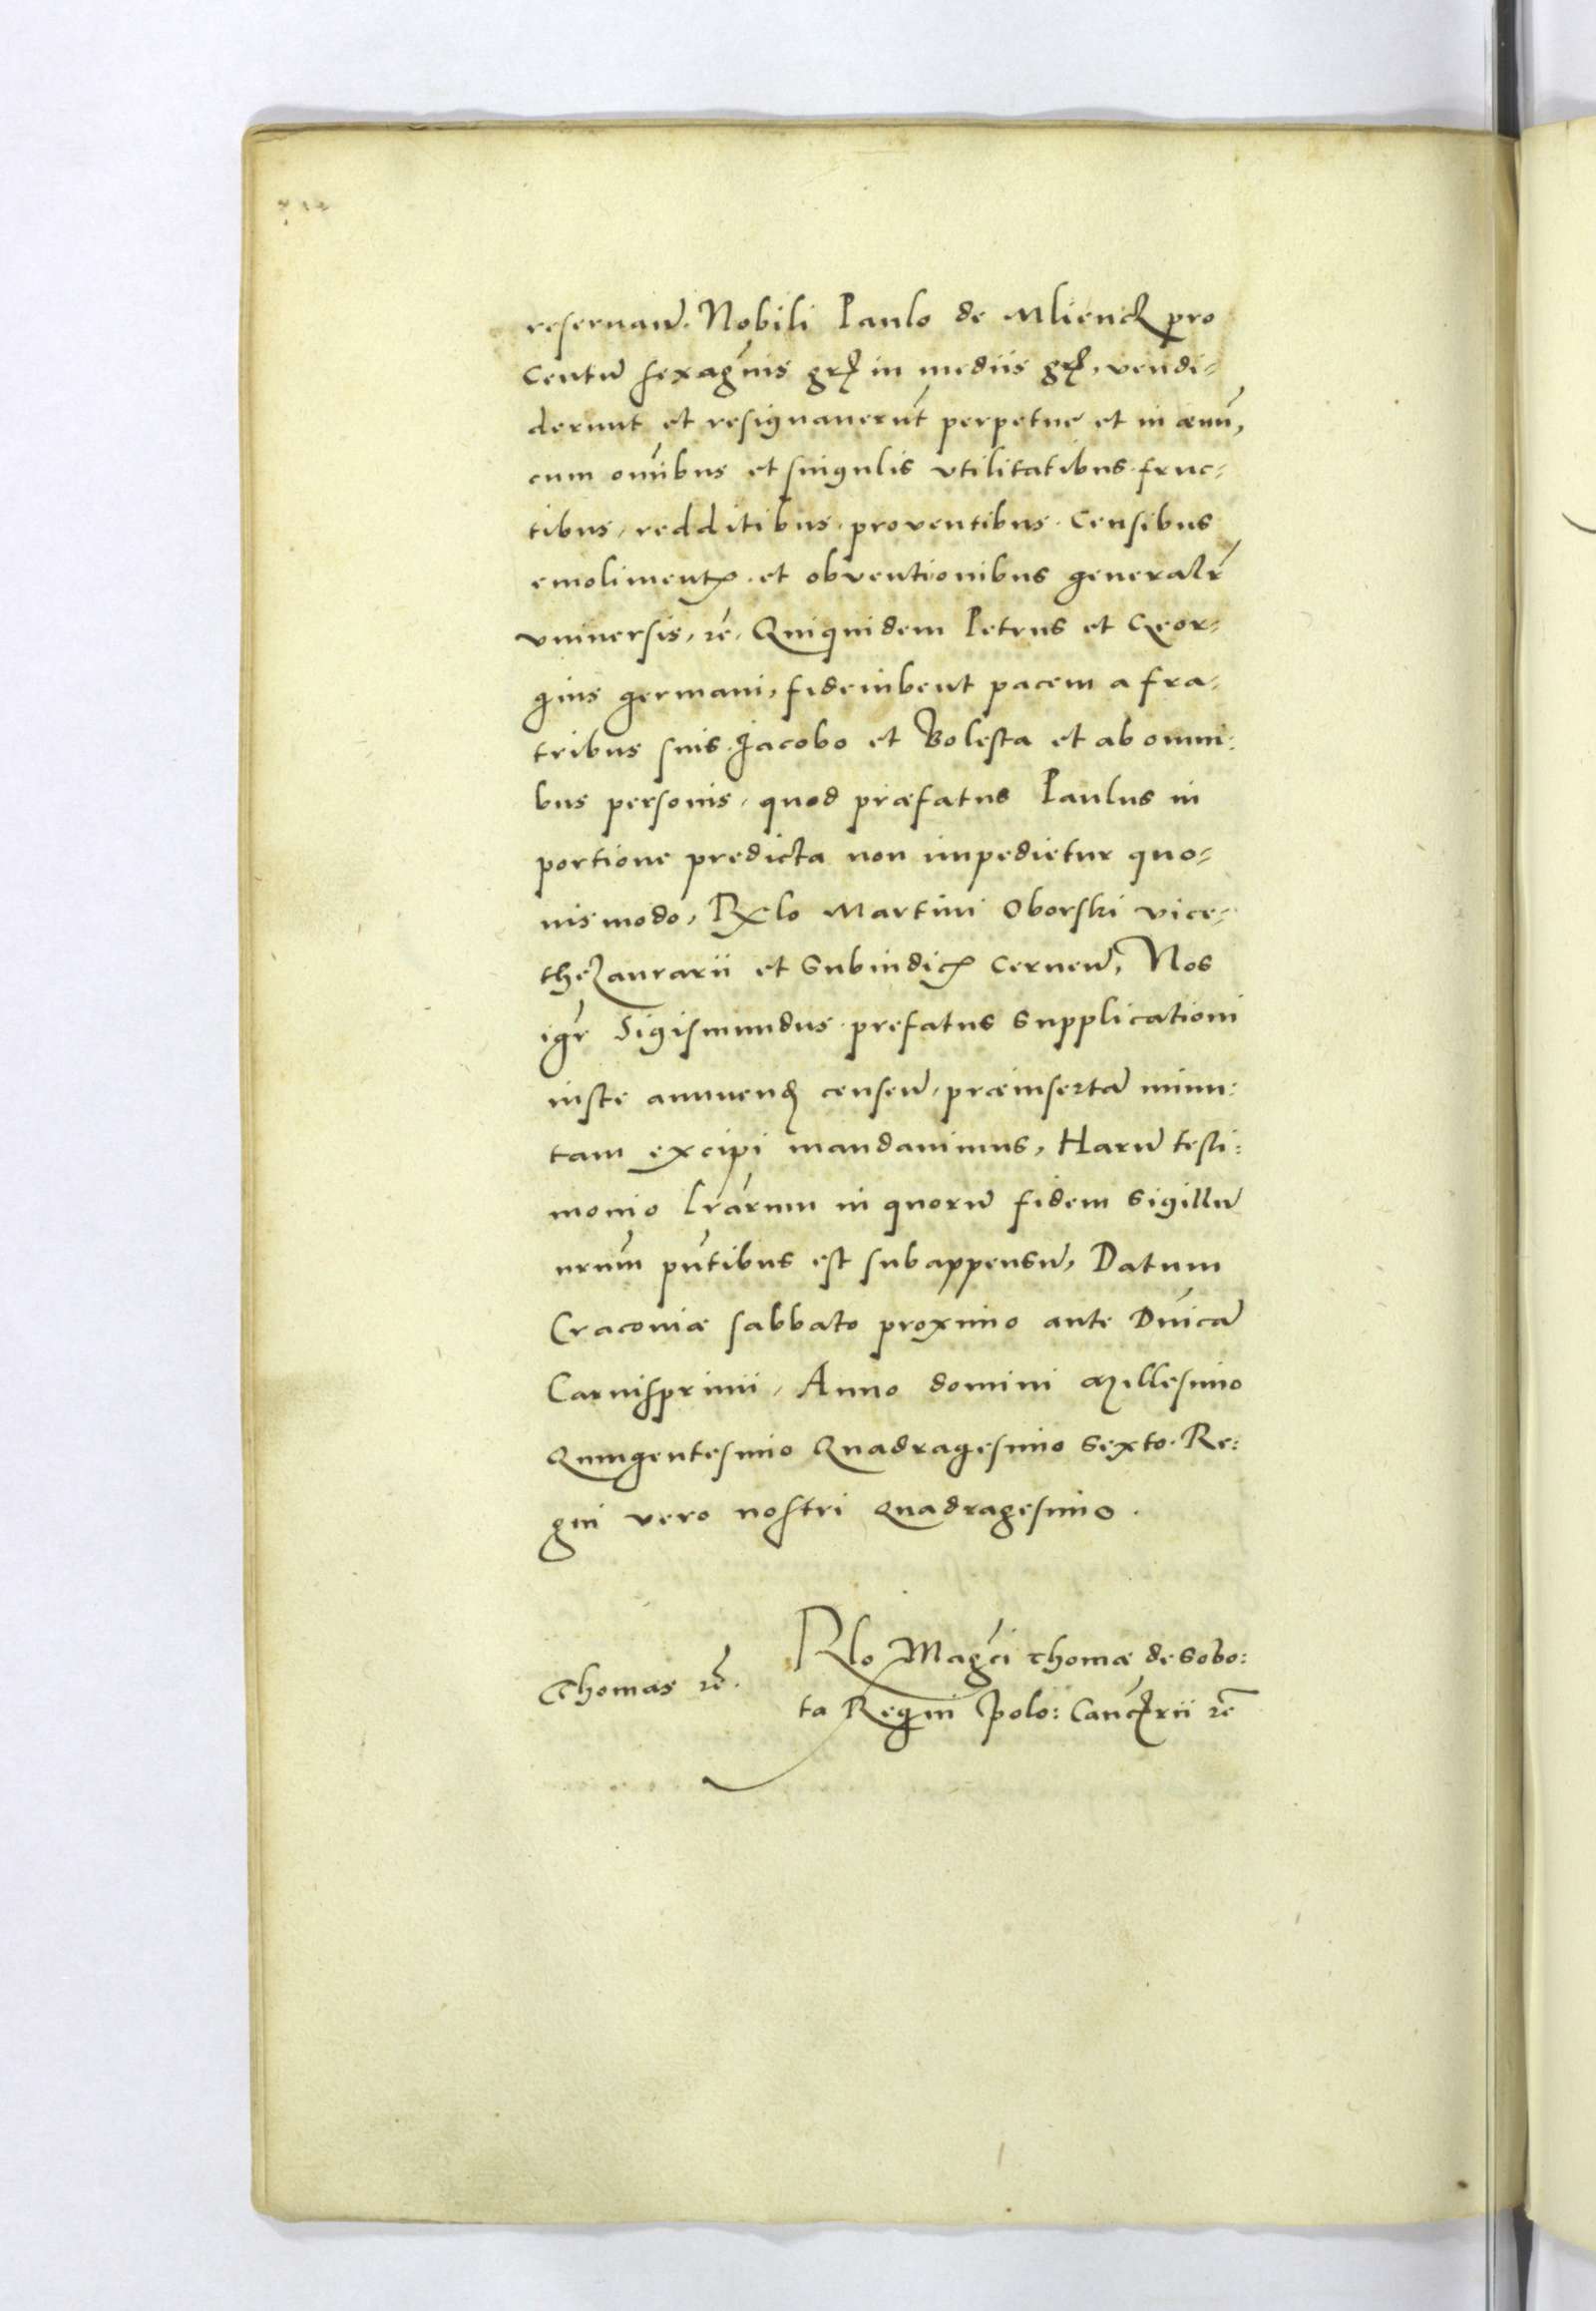 reseruan̄. Nobili Paulo de Mlienczk pro
Centū sexagn̄is grꝭ in mediis grꝭ, vendi⸗
derunt et resignauerūt perpetue et in æuū,
cum om̄ibus et singulis vtilitatibus fruc⸗
tibus, redditibus, prouentibus. Censibus
emolimentꝭ. et obuentionibus generalr̄
vniuersis, ⁊c̄. Quiquidem Petrus et Geor⸗
gius germani, fideiubent pacem a fra⸗
tribus suis Jacobo et Bolesta et ab omni⸗
bus personis, quod præfatus Paulus in
portione predicta non impedietur quo⸗
uis modo, Rlo Martini Oborski vice⸗
thezaurarii et Subiudicꝭ Cernen̄, Nos
igr̄ Sigismundus prefatus Supplicationi
iuste annuend̄ censen̄, præinsertā minu:
tam excipi mandauimus, Harū testi:
monio Lrārum in quorū fidem Sigillū
nrūm pn̄tibus est subappensū, Datum
Cracouiæ sabbato proximo ante Dn̄icā
Carnisprivii, Anno domini Millesimo
Quingentesimo Quadragesimo Sexto. Re:
gni vero nostri Quadragesimo.
Thomas ⁊c̄.
Rlo Magc̄i Thomæ de Sobo:
ta Regni Polo: Canc̄rii ⁊c̄